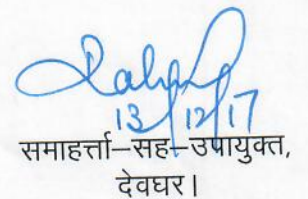 13/12/17
समाहर्त्ता–सह–उपायुक्त,
देवघर।